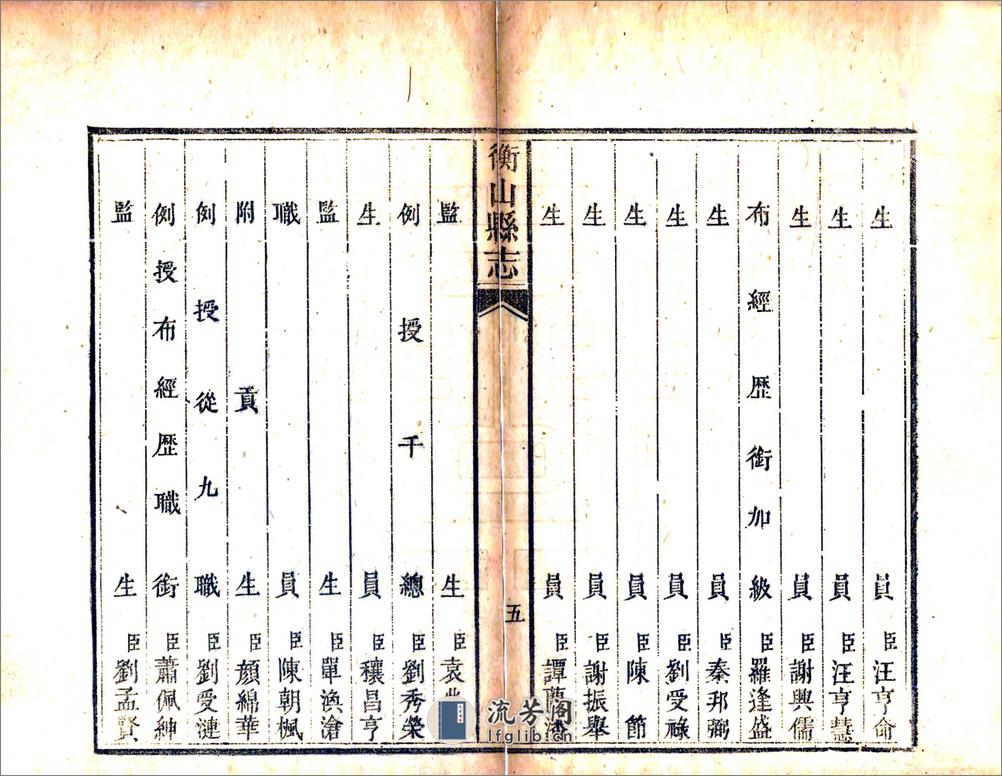 生員臣汪亨侖
生員臣汪亨慧
生員臣謝興儒
布經歷銜加級臣羅逢盛
生員臣秦邦弼
生員臣劉受祿
生員臣陳節
生員臣謝振舉
生員臣譚
衡山縣志
五
監生臣袁
例授千總臣劉秀榮
生員臣穰昌亨
監生臣單渙滄
職員臣陳朝楓
附貢生臣顏綿華
例授從九職臣劉受漣
例授布經歷職銜臣蕭佩紳
監生臣劉孟賢
流芳阁
lfglib.cn